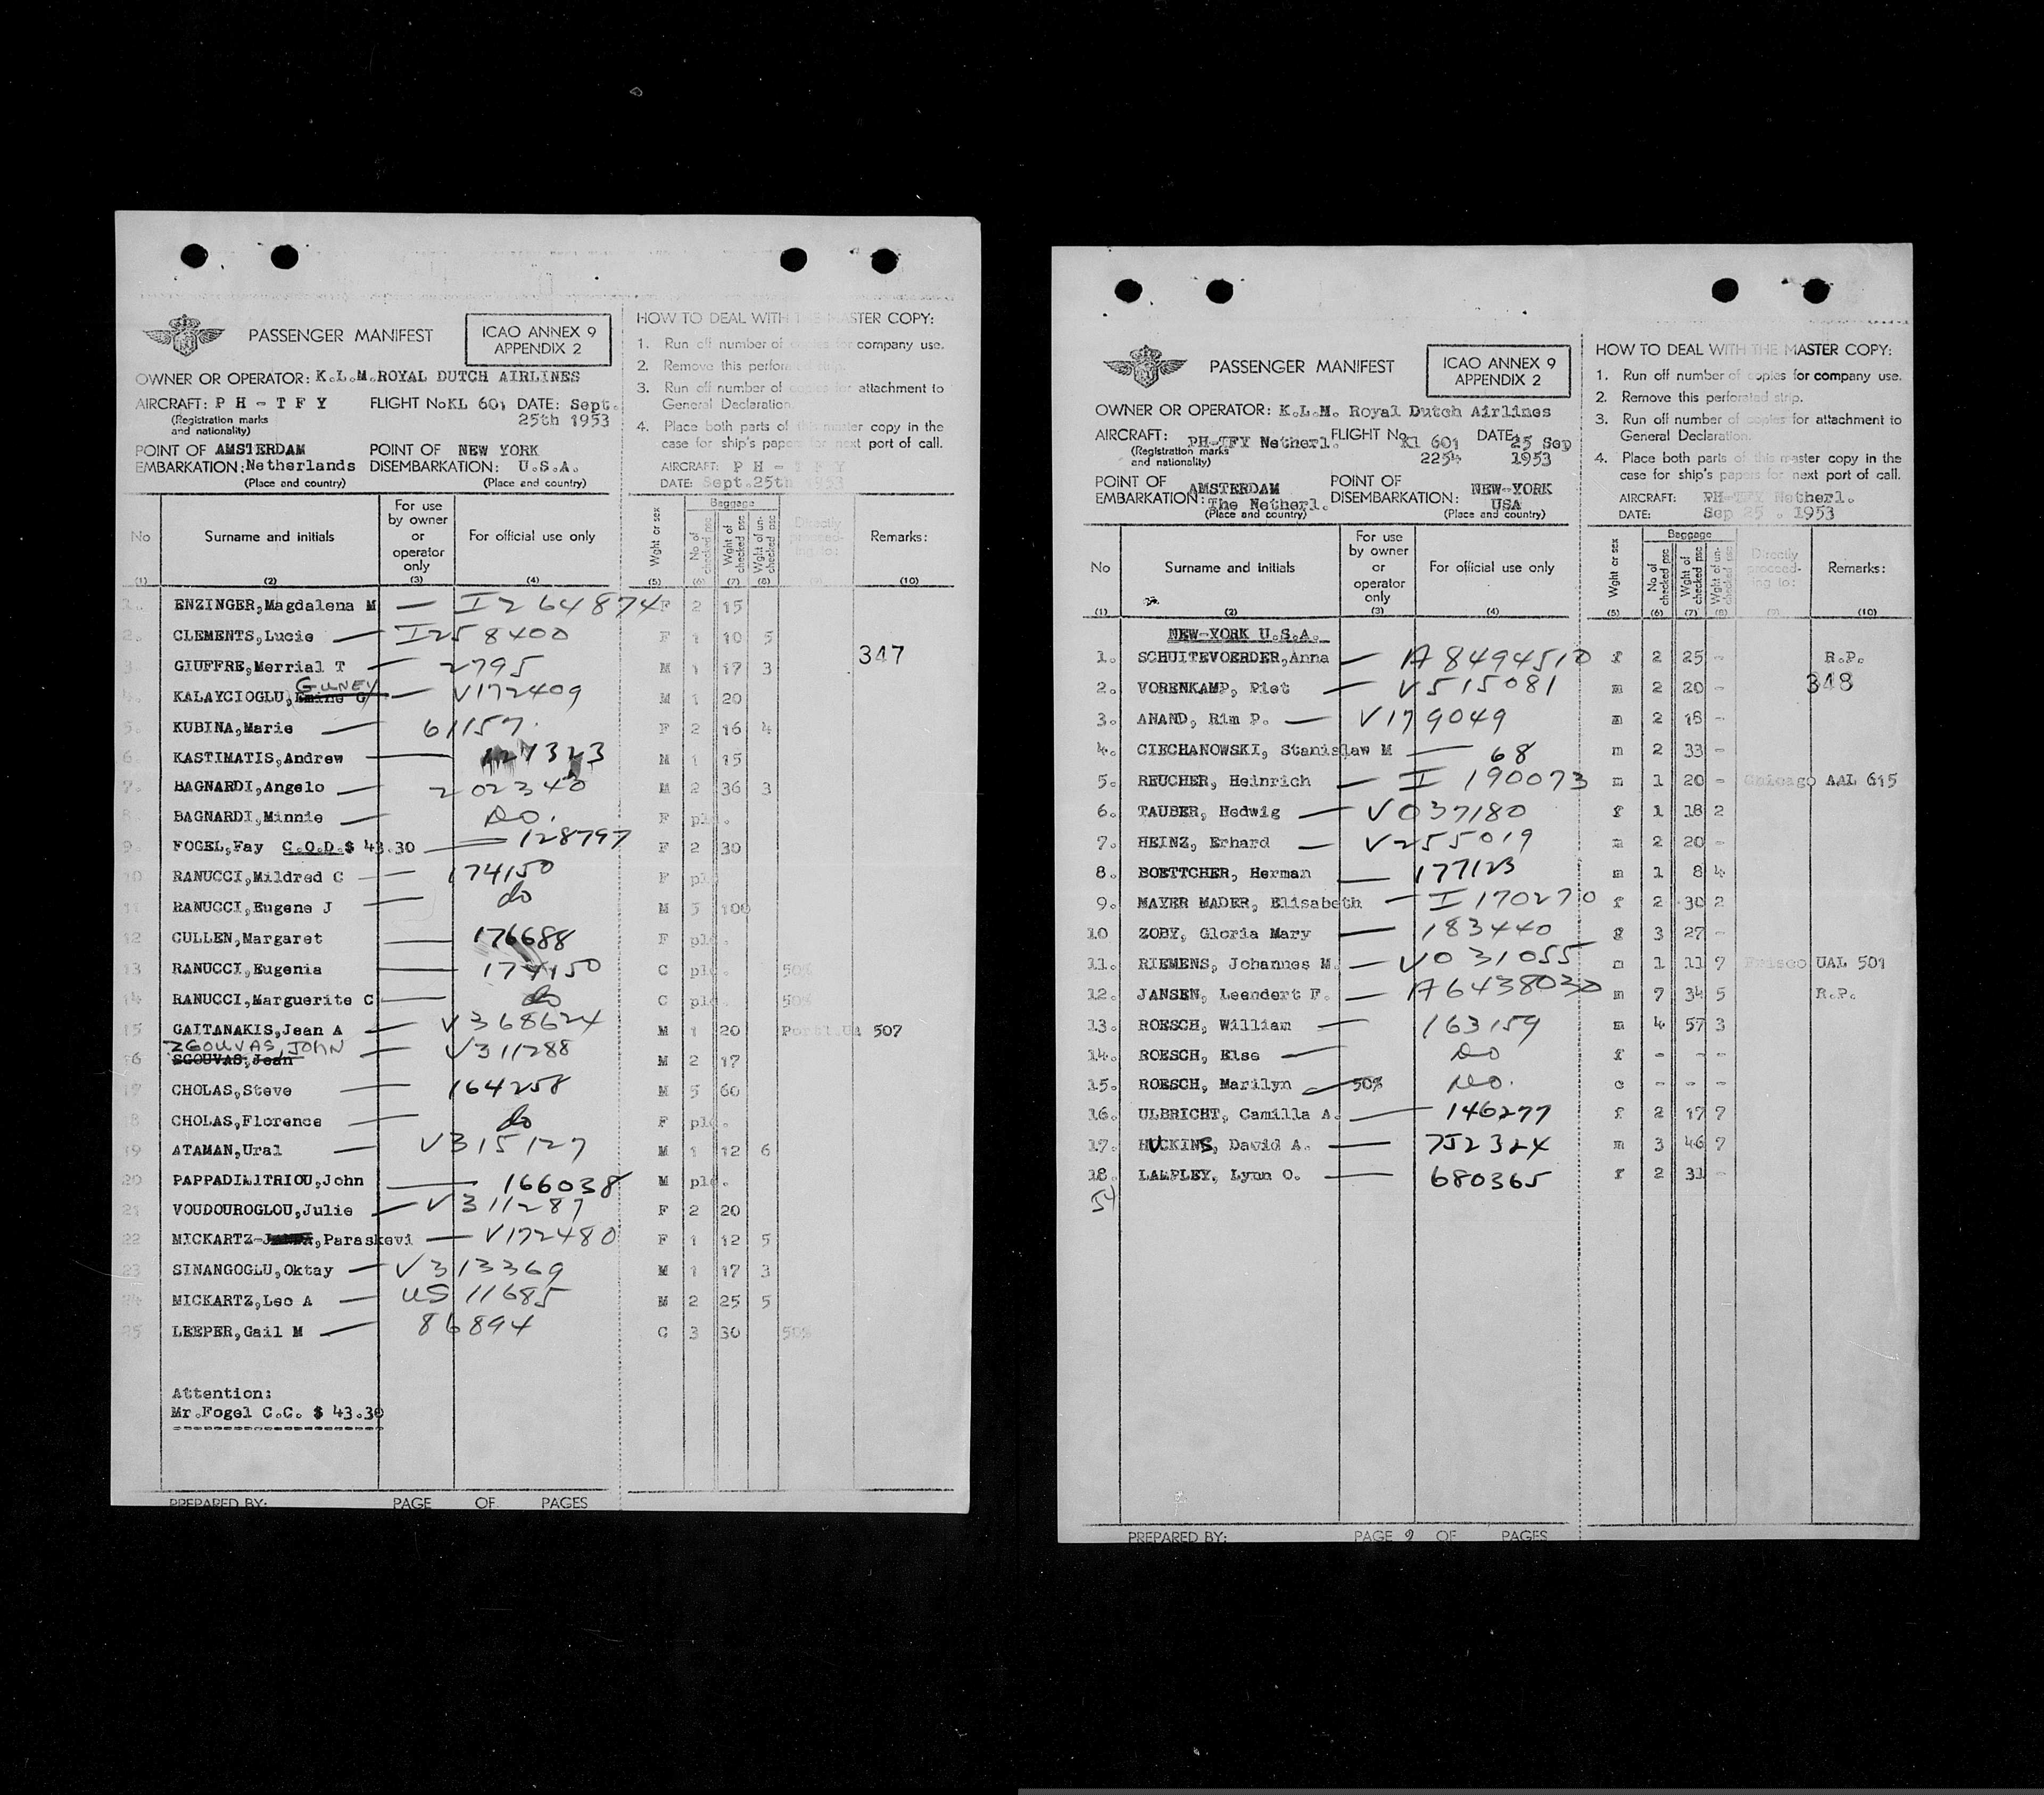 PASSENGER MANIFEST
ICAO ANNEX 9
APPENDIX 2
OWNER OR OPERATOR: K.L.M. ROYAL DUTCH AIRLINES
AIRCRAFT: P H - T F Y FLIGHT No KL 601 DATE: Sept.
(Registration marks and nationality) 25th 1953
POINT OF AMSTERDAM POINT OF NEW YORK
EMBARKATION: Netherlands DISEMBARKATION: U.S.A.
(Place and country) (Place and country)
HOW TO DEAL WITH THE MASTER COPY:
1. Run off number of copies for company use.
2. Remove this perforated strip.
3. Run off number of copies for attachment to
General Declaration.
4. Place both parts of this master copy in the
case for ship's papers for next port of call.
AIRCRAFT: P H - T F Y
DATE: Sept. 25th 1953
No Surname and initials For use by owner or operator only For official use only Wght or sex Baggage No of checked psc Wght of checked psc Wght of un-checked psc Directly proceed-ing to: Remarks:
(1) (2) (3) (4) (5) (6) (7) (8) (9) (10)
1. ENZINGER, Magdalena M — I264874 F 2 15
2. CLEMENTS, Lucie — I258400 F 1 10 5
347
3. GIUFFRE, Merrial T — 2795 M 1 17 3
GUNEY
4. KALAYCIOGLU, Emine G — V172409 M 1 20
5. KUBINA, Marie — 61157. F 2 16 4
6. KASTIMATIS, Andrew — 127323 M 1 15
7. BAGNARDI, Angelo — 202340 M 2 36 3
8. BAGNARDI, Minnie — Do. F pld.
9. FOGEL, Fay C.O.D.$ 43.30 — 128797 F 2 30
10 RANUCCI, Mildred C — 174150 F pld
11 RANUCCI, Eugene J — do M 5 100
12 CULLEN, Margaret — 176688 F pld.
13 RANUCCI, Eugenia — 174150 C pld. 50%
14 RANUCCI, Marguerite C — do C pld. 50%
15 GAITANAKIS, Jean A — V368624 M 1 20 Portl.UA 507
ZGOUVAS, JOHN
16 SGOUVAS, Jean — V311288 M 2 17
17 CHOLAS, Steve — 164258 M 5 60
18 CHOLAS, Florence — do F pld.
19 ATAMAN, Ural — V315127 M 1 12 6
20 PAPPADIMITRIOU, John — 166038 M pld.
21 VOUDOUROGLOU, Julie — V311287 F 2 20
22 MICKARTZ-, Paraskevi — V172480 F 1 12 5
23 SINANGOGLU, Oktay — V313369 M 1 17 3
24 MICKARTZ, Leo A — US 11685 M 2 25 5
25 LEEPER, Gail M — 86894 C 3 30 50%
Attention:
Mr.Fogel C.C. $ 43.30
PREPARED BY: PAGE OF PAGES
PASSENGER MANIFEST
ICAO ANNEX 9
APPENDIX 2
OWNER OR OPERATOR: K.L.M. Royal Dutch Airlines
AIRCRAFT: PH-TFY Netherl. FLIGHT No Kl 601 DATE: 25 Sep
(Registration marks and nationality) 2254 1953
POINT OF AMSTERDAM POINT OF NEW-YORK
EMBARKATION: The Netherl. DISEMBARKATION: USA
(Place and country) (Place and country)
HOW TO DEAL WITH THE MASTER COPY:
1. Run off number of copies for company use.
2. Remove this perforated strip.
3. Run off number of copies for attachment to
General Declaration.
4. Place both parts of this master copy in the
case for ship's papers for next port of call.
AIRCRAFT: PH-TFY Netherl.
DATE: Sep 25 . 1953
No Surname and initials For use by owner or operator only For official use only Wght or sex Baggage No of checked psc Wght of checked psc Wght of un-checked psc Directly proceed-ing to: Remarks:
(1) (2) (3) (4) (5) (6) (7) (8) (9) (10)
NEW-YORK U.S.A.
1. SCHUITEVOERDER, Anna — A8494510 f 2 25 - R.P.
2. VORENKAMP, Piet — V515081 m 2 20 - 348
3. ANAND, Rim P. — V179049 m 2 18 -
4. CIECHANOWSKI, Stanislaw M — 68 m 2 33 -
5. REUCHER, Heinrich — I 190073 m 1 20 - Chicago AAL 615
6. TAUBER, Hedwig — V037180 f 1 18 2
7. HEINZ, Erhard — V255019 m 2 20 -
8. BOETTCHER, Herman — 177123 m 1 8 4
9. MAYER MADER, Elisabeth — I 170270 f 2 30 2
10 ZOBY, Gloria Mary — 183440 f 3 27 -
11. RIEMENS, Johannes M. — V031055 m 1 11 7 Frisco UAL 501
12. JANSEN, Leendert F. — A6438030 m 7 34 5 R.P.
13. ROESCH, William — 163159 m 4 57 3
14. ROESCH, Else — Do f - - -
15. ROESCH, Marilyn — 50% Do. c - - -
16. ULBRICHT, Camilla A. — 146277 f 2 17 7
17. HUCKINS, David A. — 752324 m 3 46 7
18. LAMPLEY, Lynn O. — 680365 f 2 31 -
PREPARED BY: PAGE 2 OF PAGES